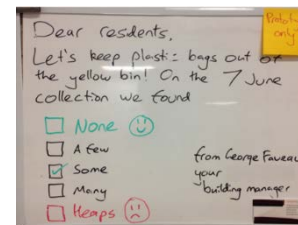 Dear resdents,
Let's keep plasti: bags out of
the yellow bin! On the 7 June
collection we found
None
A few
Some
Many
Heaps
from George Faveau
your
building manager
only